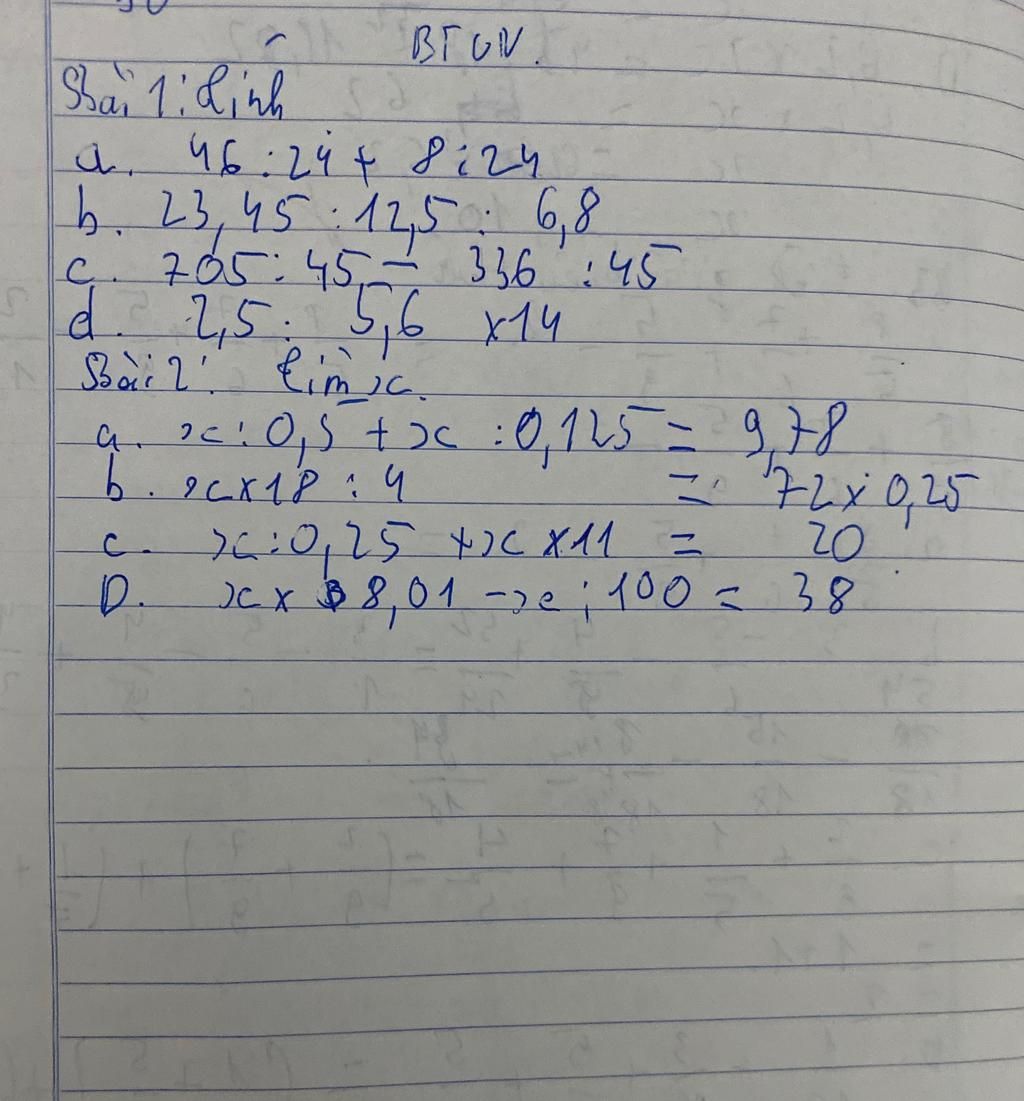 BTVN.
Bài 1: Tính
a. 46 : 24 + 8 : 24
b. 23,45 : 12,5 : 6,8
c. 705 : 45 - 336 : 45
d. 2,5 : 5,6 x 14
Bài 2: tìm x.
a. x : 0,5 + x : 0,125 = 9,78
b. x x 18 : 4 = 72 x 0,25
c. x : 0,25 + x x 11 = 20
D. x x 8,01 - x : 100 = 38